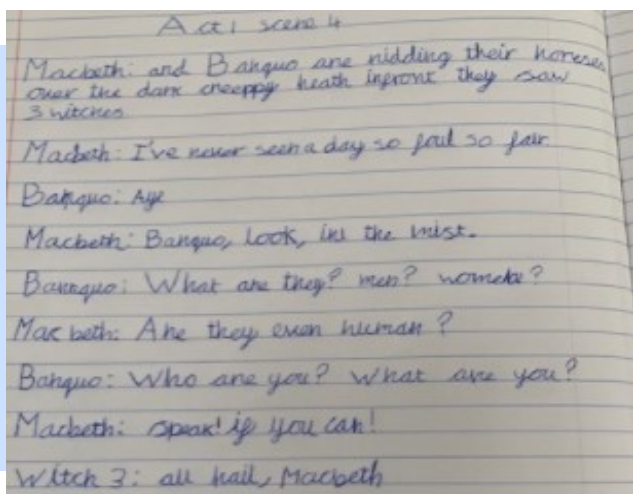 Act 1 scene 4
Macbeth: and Banquo are ridding their horeses
over the dark creeppy heath infront they saw
3 witches
Macbeth: I've never seen a day so foul so fair.
Banquo: Aye
Macbeth: Banquo, look, in the mist.
Bannquo: What are they? men?
Macbeth: Are they even human?
Banquo: Who are you? What are you?
Macbeth: speak! if you can!
Witch 3: all hail, Macbeth